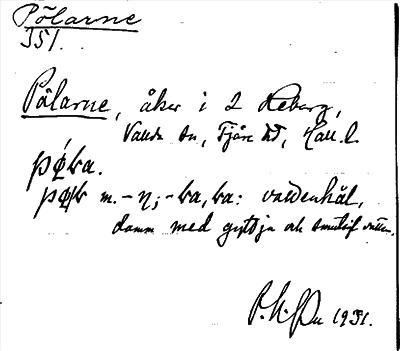 Pölarne
351.
Pölarne, åker i 2 Reberg,
Vallda sn, Fjäre hd, Hall. l.
pǿka.
m. -η; -ka, ka: vattenhål,
damm med gyttja och smutsigt vatten.
1931.